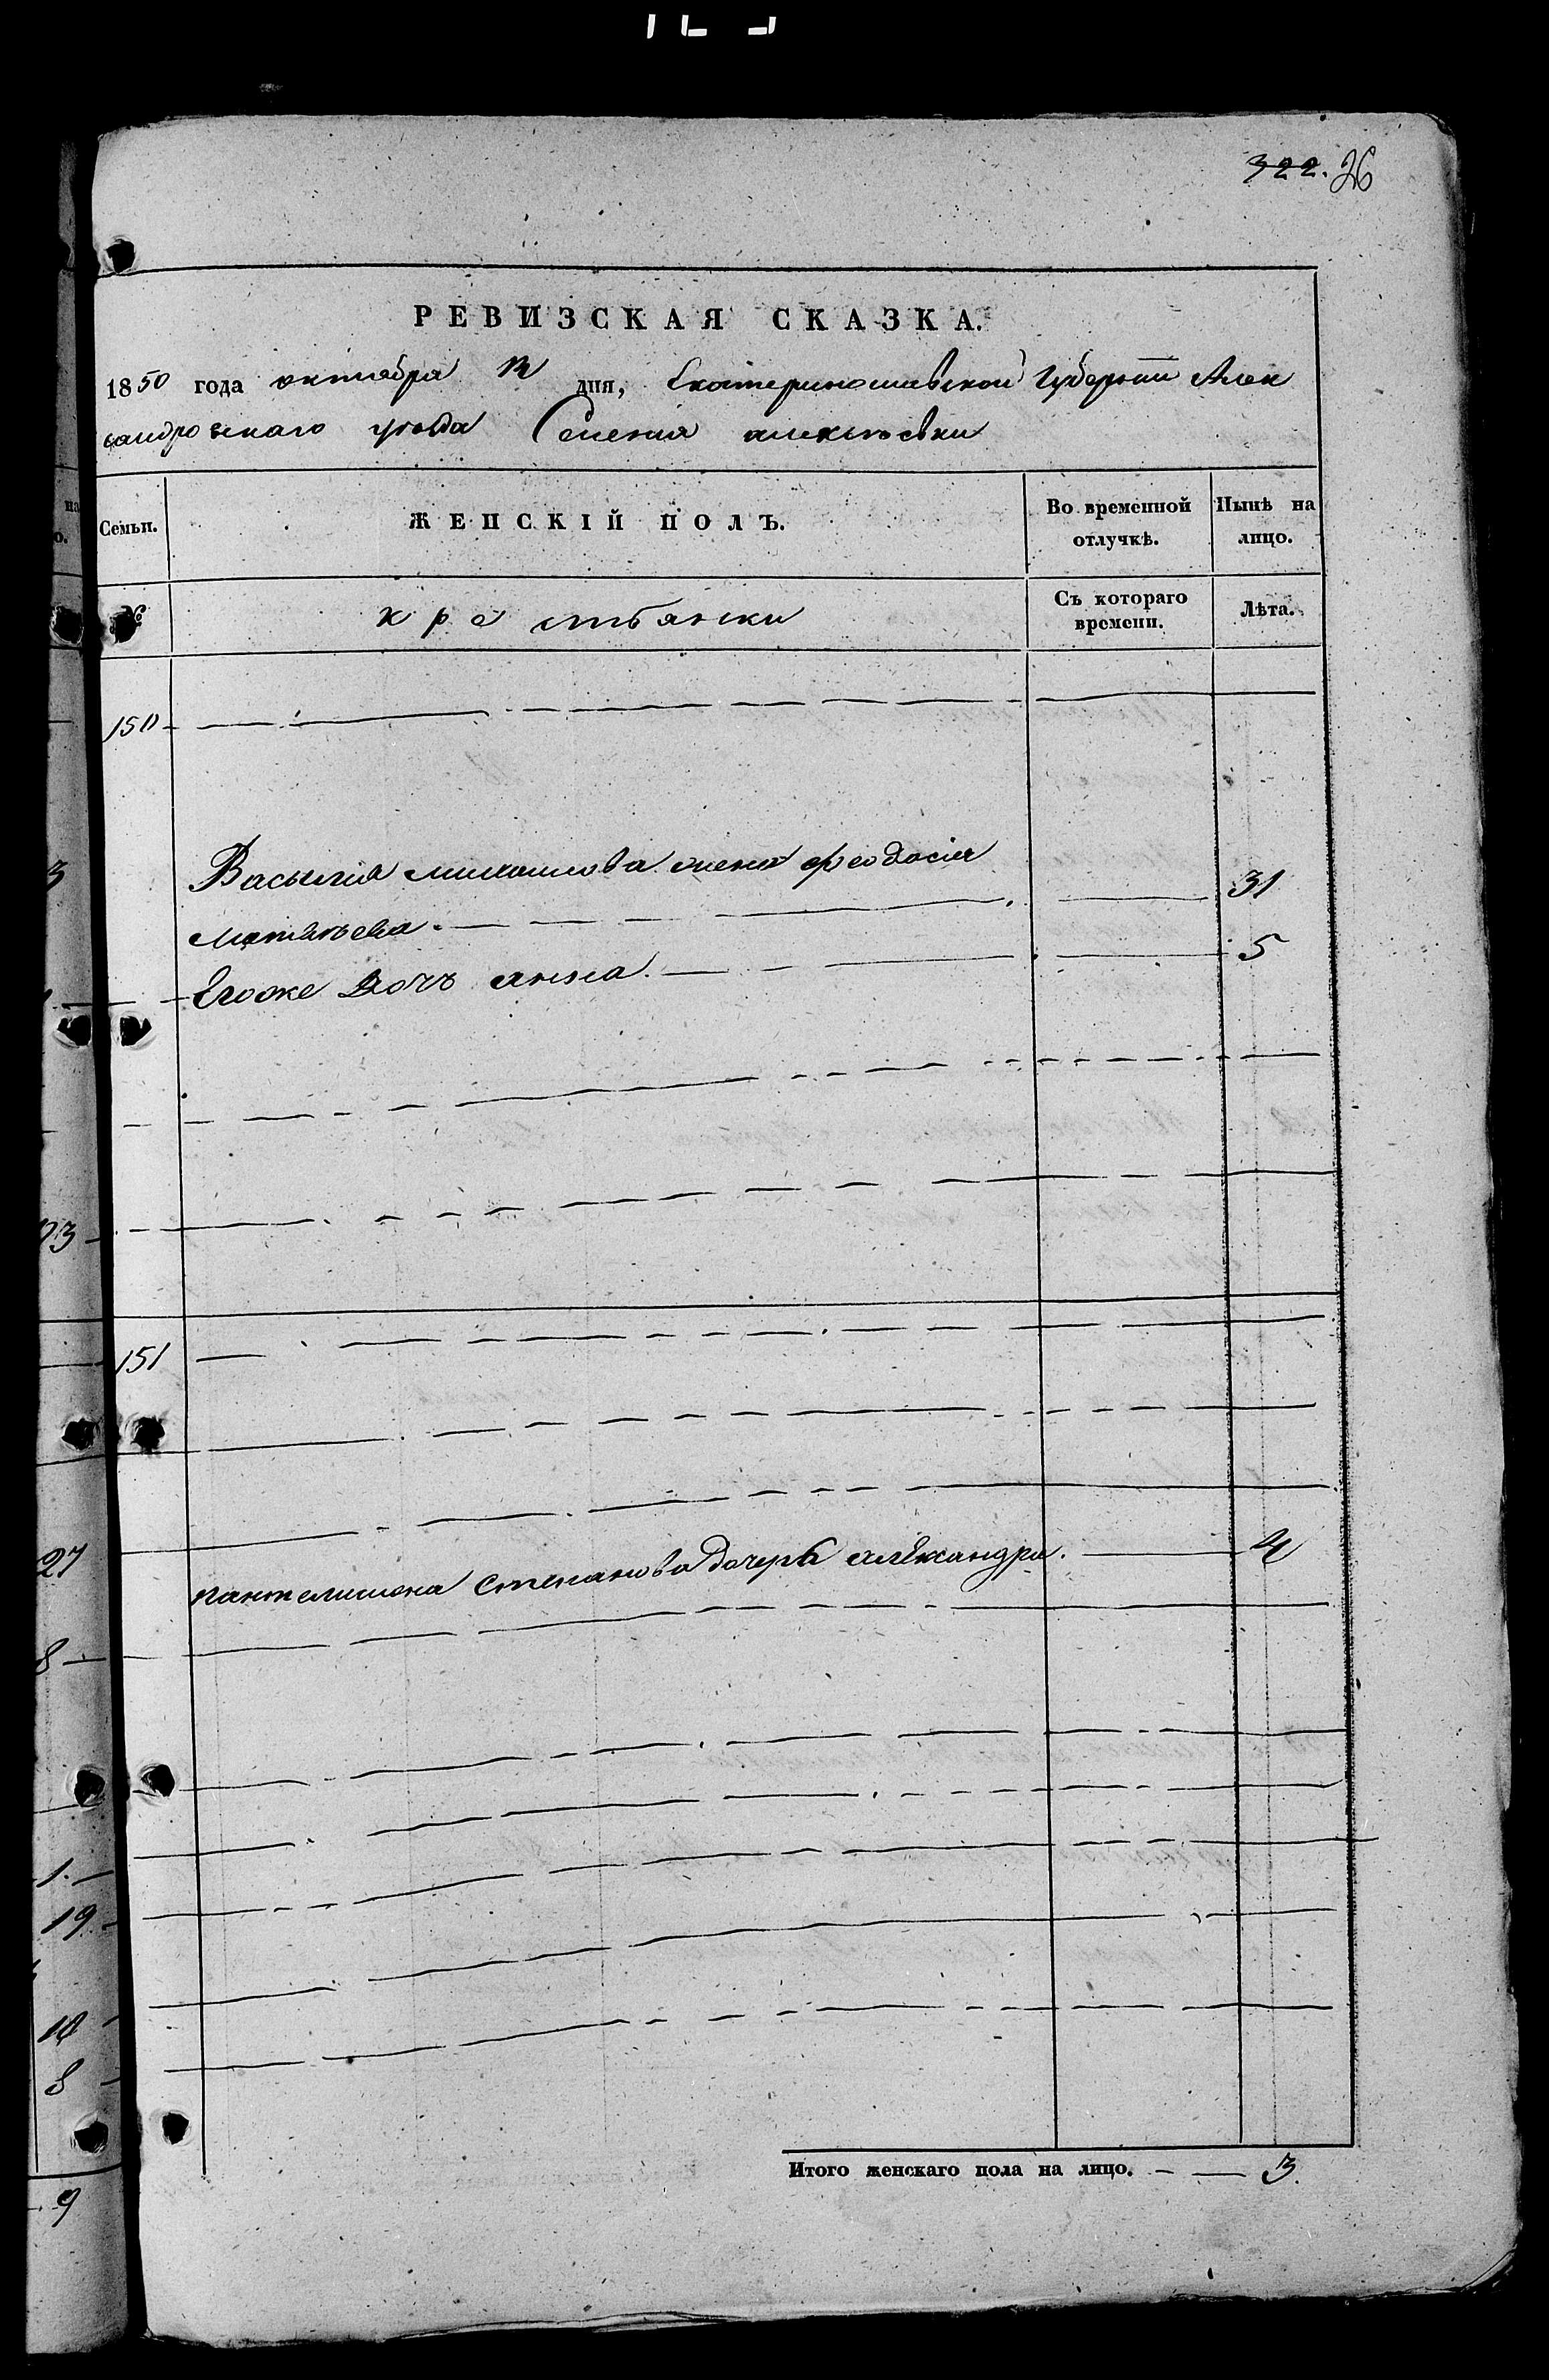 322. 26
РЕВИЗСКАЯ СКАЗКА.
1850 года октября дня, Екатеринославской Губернии Алек
сандровскаго уезда Селения алексеевки
на
о.
Семьи. ЖЕНСКІЙ ПОЛЪ. Во временной отлучкѣ. Нынѣ на лицо.
№ крестьянки Съ котораго времени. Лѣта.
150
Василия михаилова жена феодосия
матвеева. 31
Егоже дочь анна. 5
3
23
151
27
пантелимона степанова дочерь александра. 4
8
1.
19
10
8
9
Итого женскаго пола на лицо. 3.